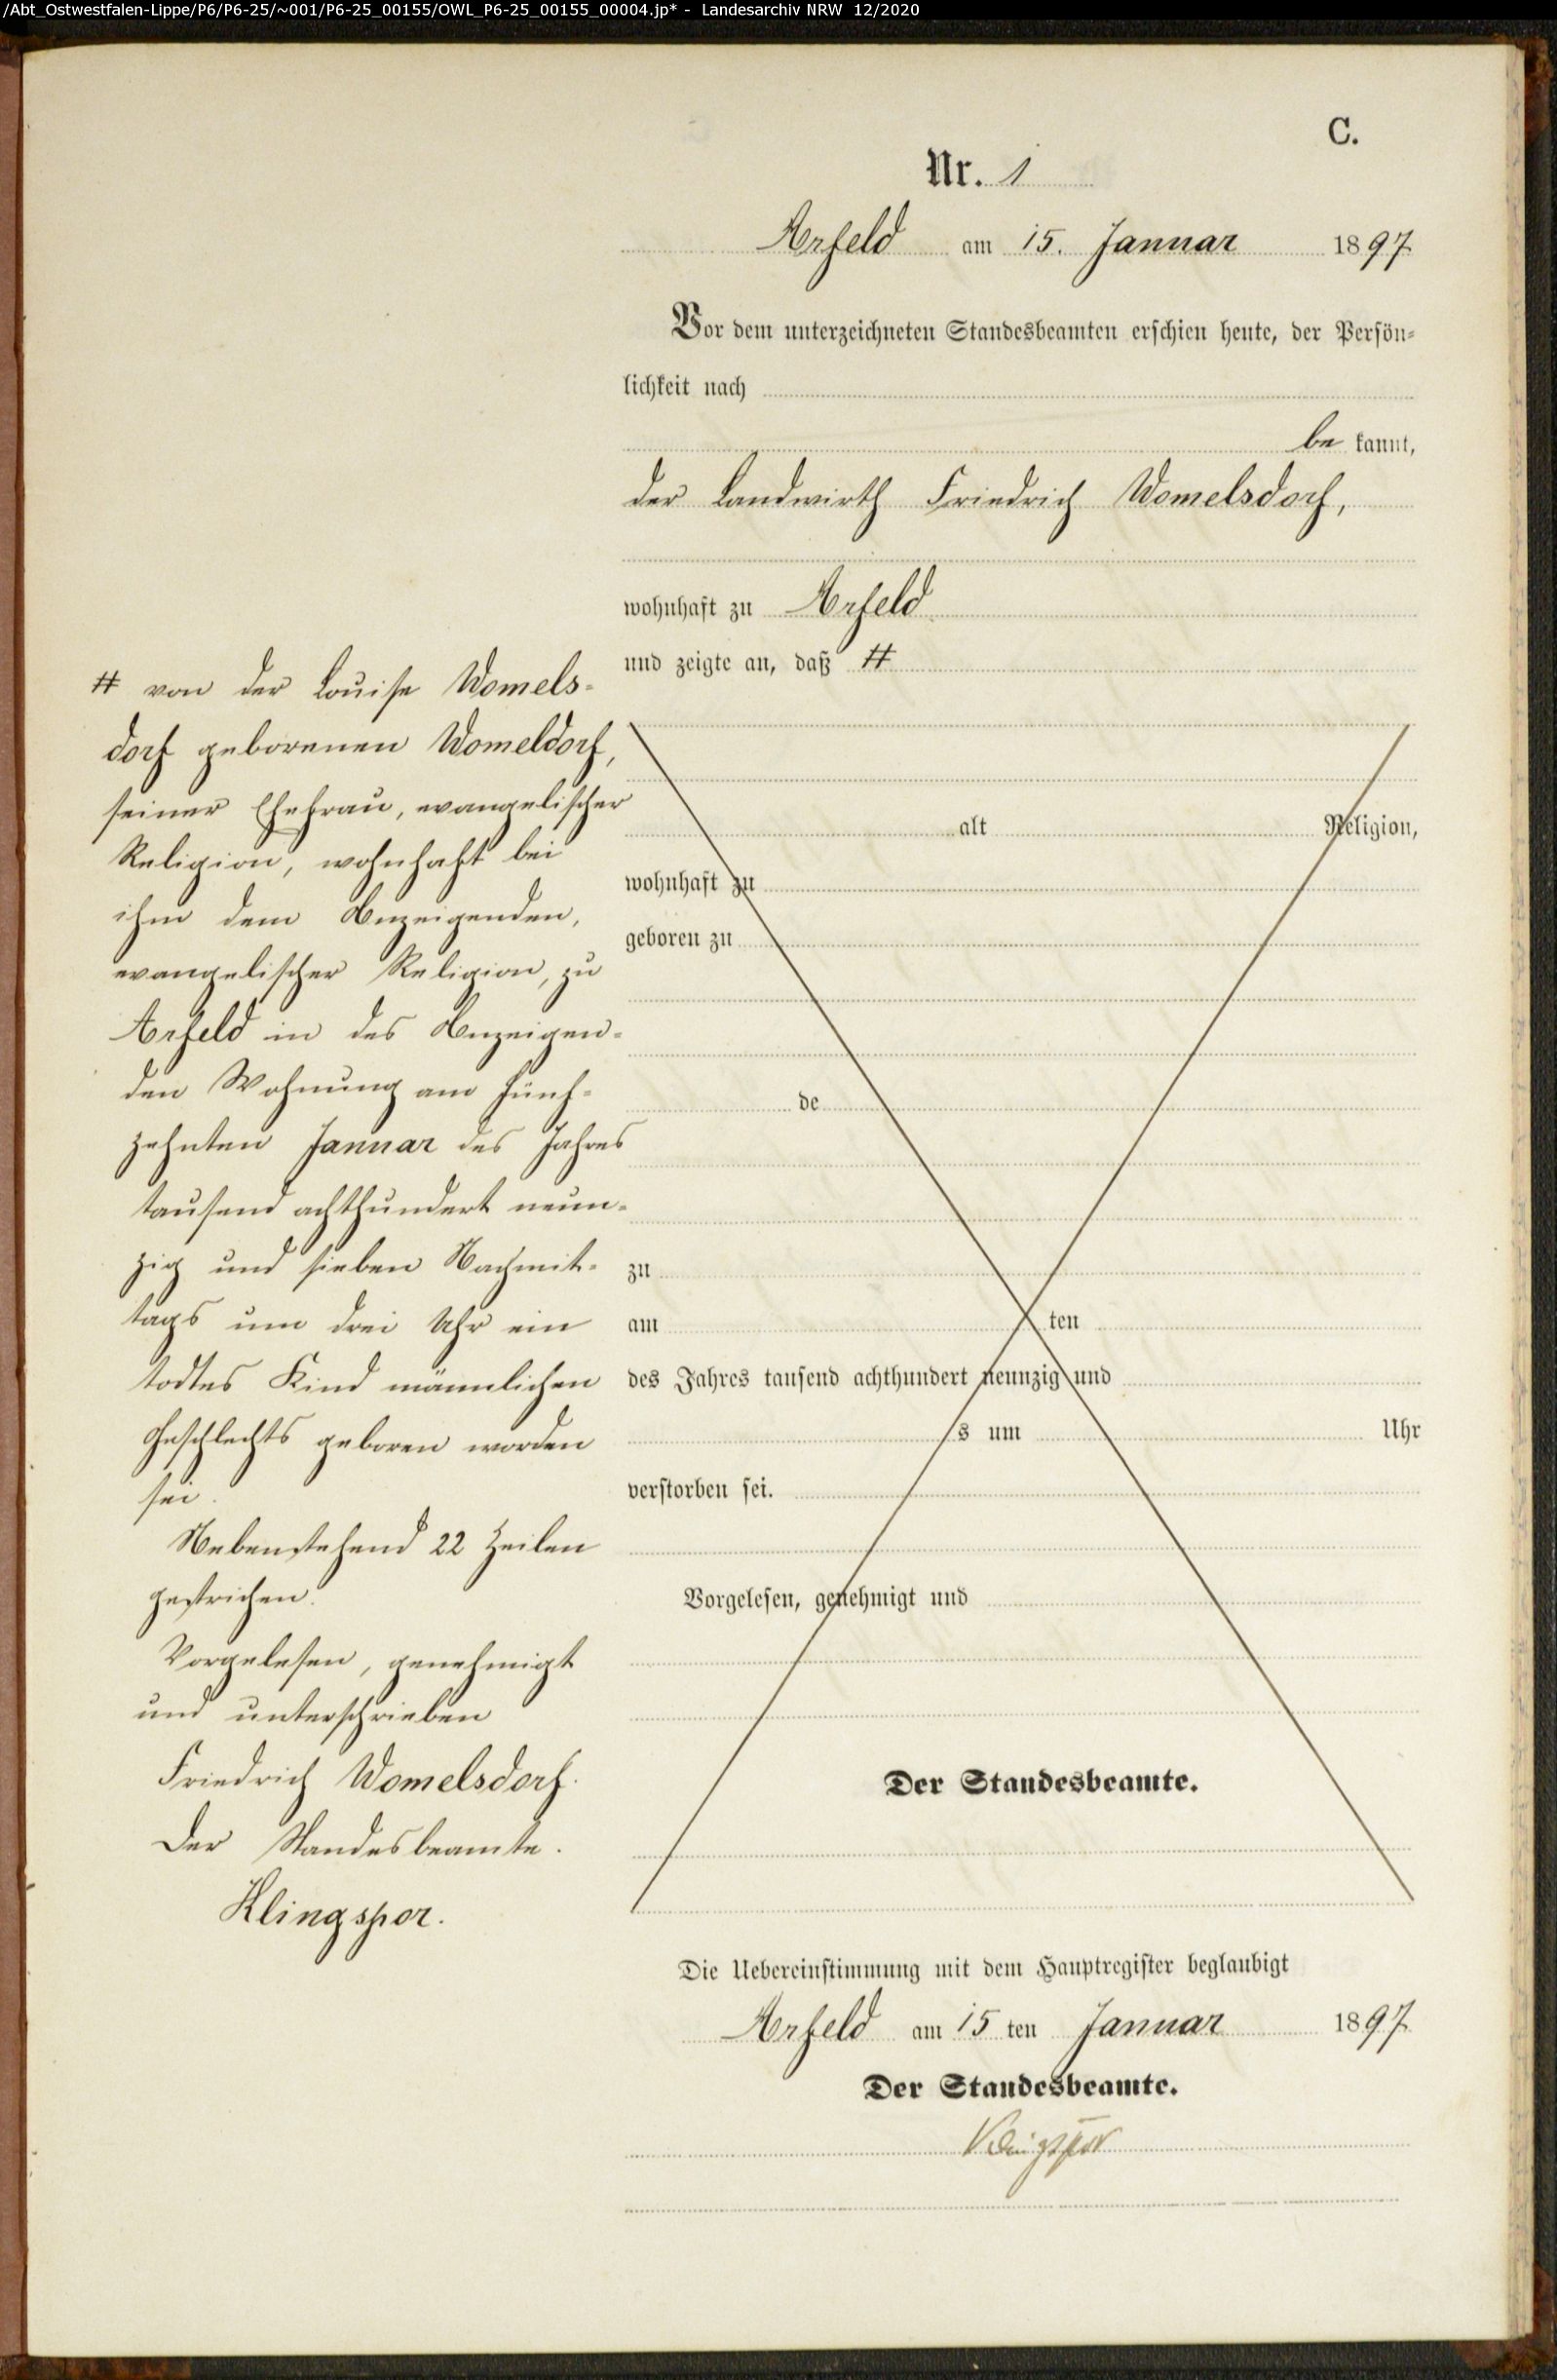 /Abt_Ostwestfalen-Lippe/P6/P6-25/~001/P6-25_00155/OWL_P6-25_00155_00004.jp* - Landesarchiv NRW 12/2020
C.
Nr. 1
Arfeld am 15. Januar 1897
Vor dem unterzeichneten Standesbeamten erschien heute, der Persön-
lichkeit nach
be kannt,
der Landwirth Friedrich Womelsdorf,
wohnhaft zu Arfeld
und zeigte an, daß #
# von der Louise Womels-
dorf geborenen Womeldorf,
seiner Ehefrau, evangelischer
Religion, wohnhaft bei
ihm dem Anzeigenden,
evangelischer Religion, zu
Arfeld in des Anzeigen-
den Wohnung am fünf-
zehnten Januar des Jahres
tausend achthundert neun-
zig und sieben Nachmit-
tags um drei Uhr ein
todtes Kind männlichen
Geschlechts geboren worden
sei.
Nebenstehend 22 Zeilen
gestrichen.
Vorgelesen, genehmigt
und unterschrieben
Friedrich Womelsdorf.
Der Standesbeamte.
Klingspor.
alt Religion,
wohnhaft zu
geboren zu
de
zu
am ten
des Jahres tausend achthundert neunzig und
s um Uhr
verstorben sei.
Vorgelesen, genehmigt und
Der Standesbeamte.
Die Uebereinstimmung mit dem Hauptregister beglaubigt
Arfeld am 15 ten Januar 1897
Der Standesbeamte.
Klingspor